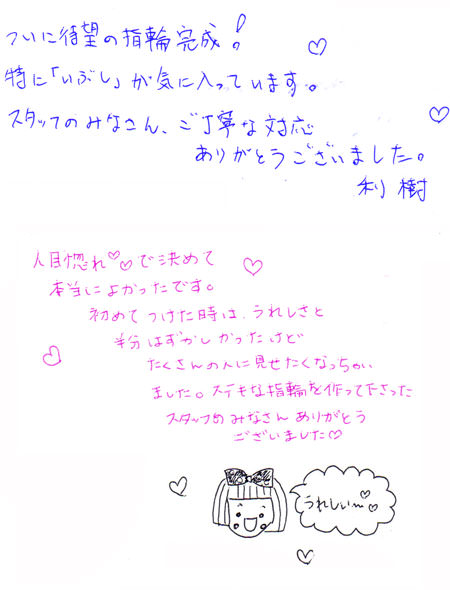 ついに待望の指輪完成！
特に「いぶし」が気に入っています。
スタッフのみなさん、ご丁寧な対応
ありがとうございました。
利樹
人目惚れ♡♡で決めて
本当によかったです。
初めてつけた時は、うれしさと
半分はずかしかったけど
たくさんの人に見せたくなっちゃい
ました。ステキな指輪を作って下さった
スタッフのみなさんありがとう
ございました♡
うれしい〜♡♡